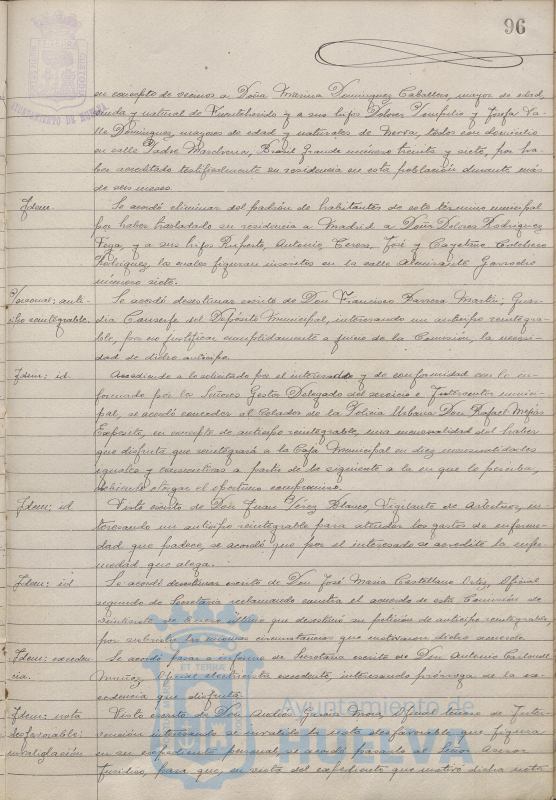 96
en concepto de vecinos a Doña Marina Dominguez Caballero, mayor de edad,
viuda y natural de y a sus hijos Dolores y Josefa Va-
lle Dominguez, mayores de edad y naturales de Nerva, todos con domicilio
en calle Padre Marchena, Brasil Grande número treinta y siete, por ha-
ber acreditado testificalmente su residencia en esta población durante más
de seis meses.
Idem. Se acordó eliminar del padrón de habitantes de este término municipal
por haber trasladado su residencia a Madrid a Doña Dolores Rodriguez
Vega, y a sus hijos Ruperto, Antonio, Teresa, José y Cayetano
Rodriguez, los cuales figuran inscritos en la calle Almirante Garrocho
número siete.
Personal: anti- Se acordó desestimar escrito de Don Francisco Barrera Martin; Guar-
cipo reintegrable. dia Conserje del Depósito Municipal, interesando un anticipo reintegra-
ble, por no justificar cumplidamente a juicio de la Comision, la necesi-
dad de dicho anticipo.
Idem: id. Accediendo a lo solicitado por el interesado y de conformidad con lo in-
formado por los Señores Gestor Delegado del servicio e Interventor munici-
pal, se acordó conceder al Celador de la Policia Urbana Don Rafael
Expósito, en concepto de anticipo reintegrable, una mensualidad del haber
que disfruta que reintegrará a la Caja Municipal en diez mensualidades
iguales y consecutivas a partir de la siguiente a la en que lo perciba,
debiendo otorgar el oportuno compromiso.
Idem: id Visto escrito de Don Juan Pérez Blanco, Vigilante de Arbitrios, in-
teresando un anticipo reintegrable para atender los gastos de enferme-
dad que padece, se acordó que por el interesado se acredite la enfer-
medad que alega.
Idem: id Se acordó desestimar escrito de Don José Maria Castellano Ortiz, Oficial
segundo de Secretaria reclamando contra el acuerdo de esta Comision de
veintiocho de Enero último que desestimó su petición de anticipo reintegrable,
por subsistir las mismas circunstancias que motivaron dicho acuerdo.
Idem: exceden- Se acordó pasar a informe de Secretaria escrito de Don Antonio
cia. Muñoz, Oficial electricista excedente, interesando prórroga de la ex-
cedencia que disfruta.
Idem: nota Visto escrito de Don Andrés Garcia Mora, Oficial tercero de Inter-
desfavorable: vención interesando se invalide la nota desfavorable que figura
invalidación en su expediente personal, se acordó pasarlo al Señor Asesor
Juridico, para que, en vista del expediente que motivó dicha nota
Ayuntamiento de
HUELVA